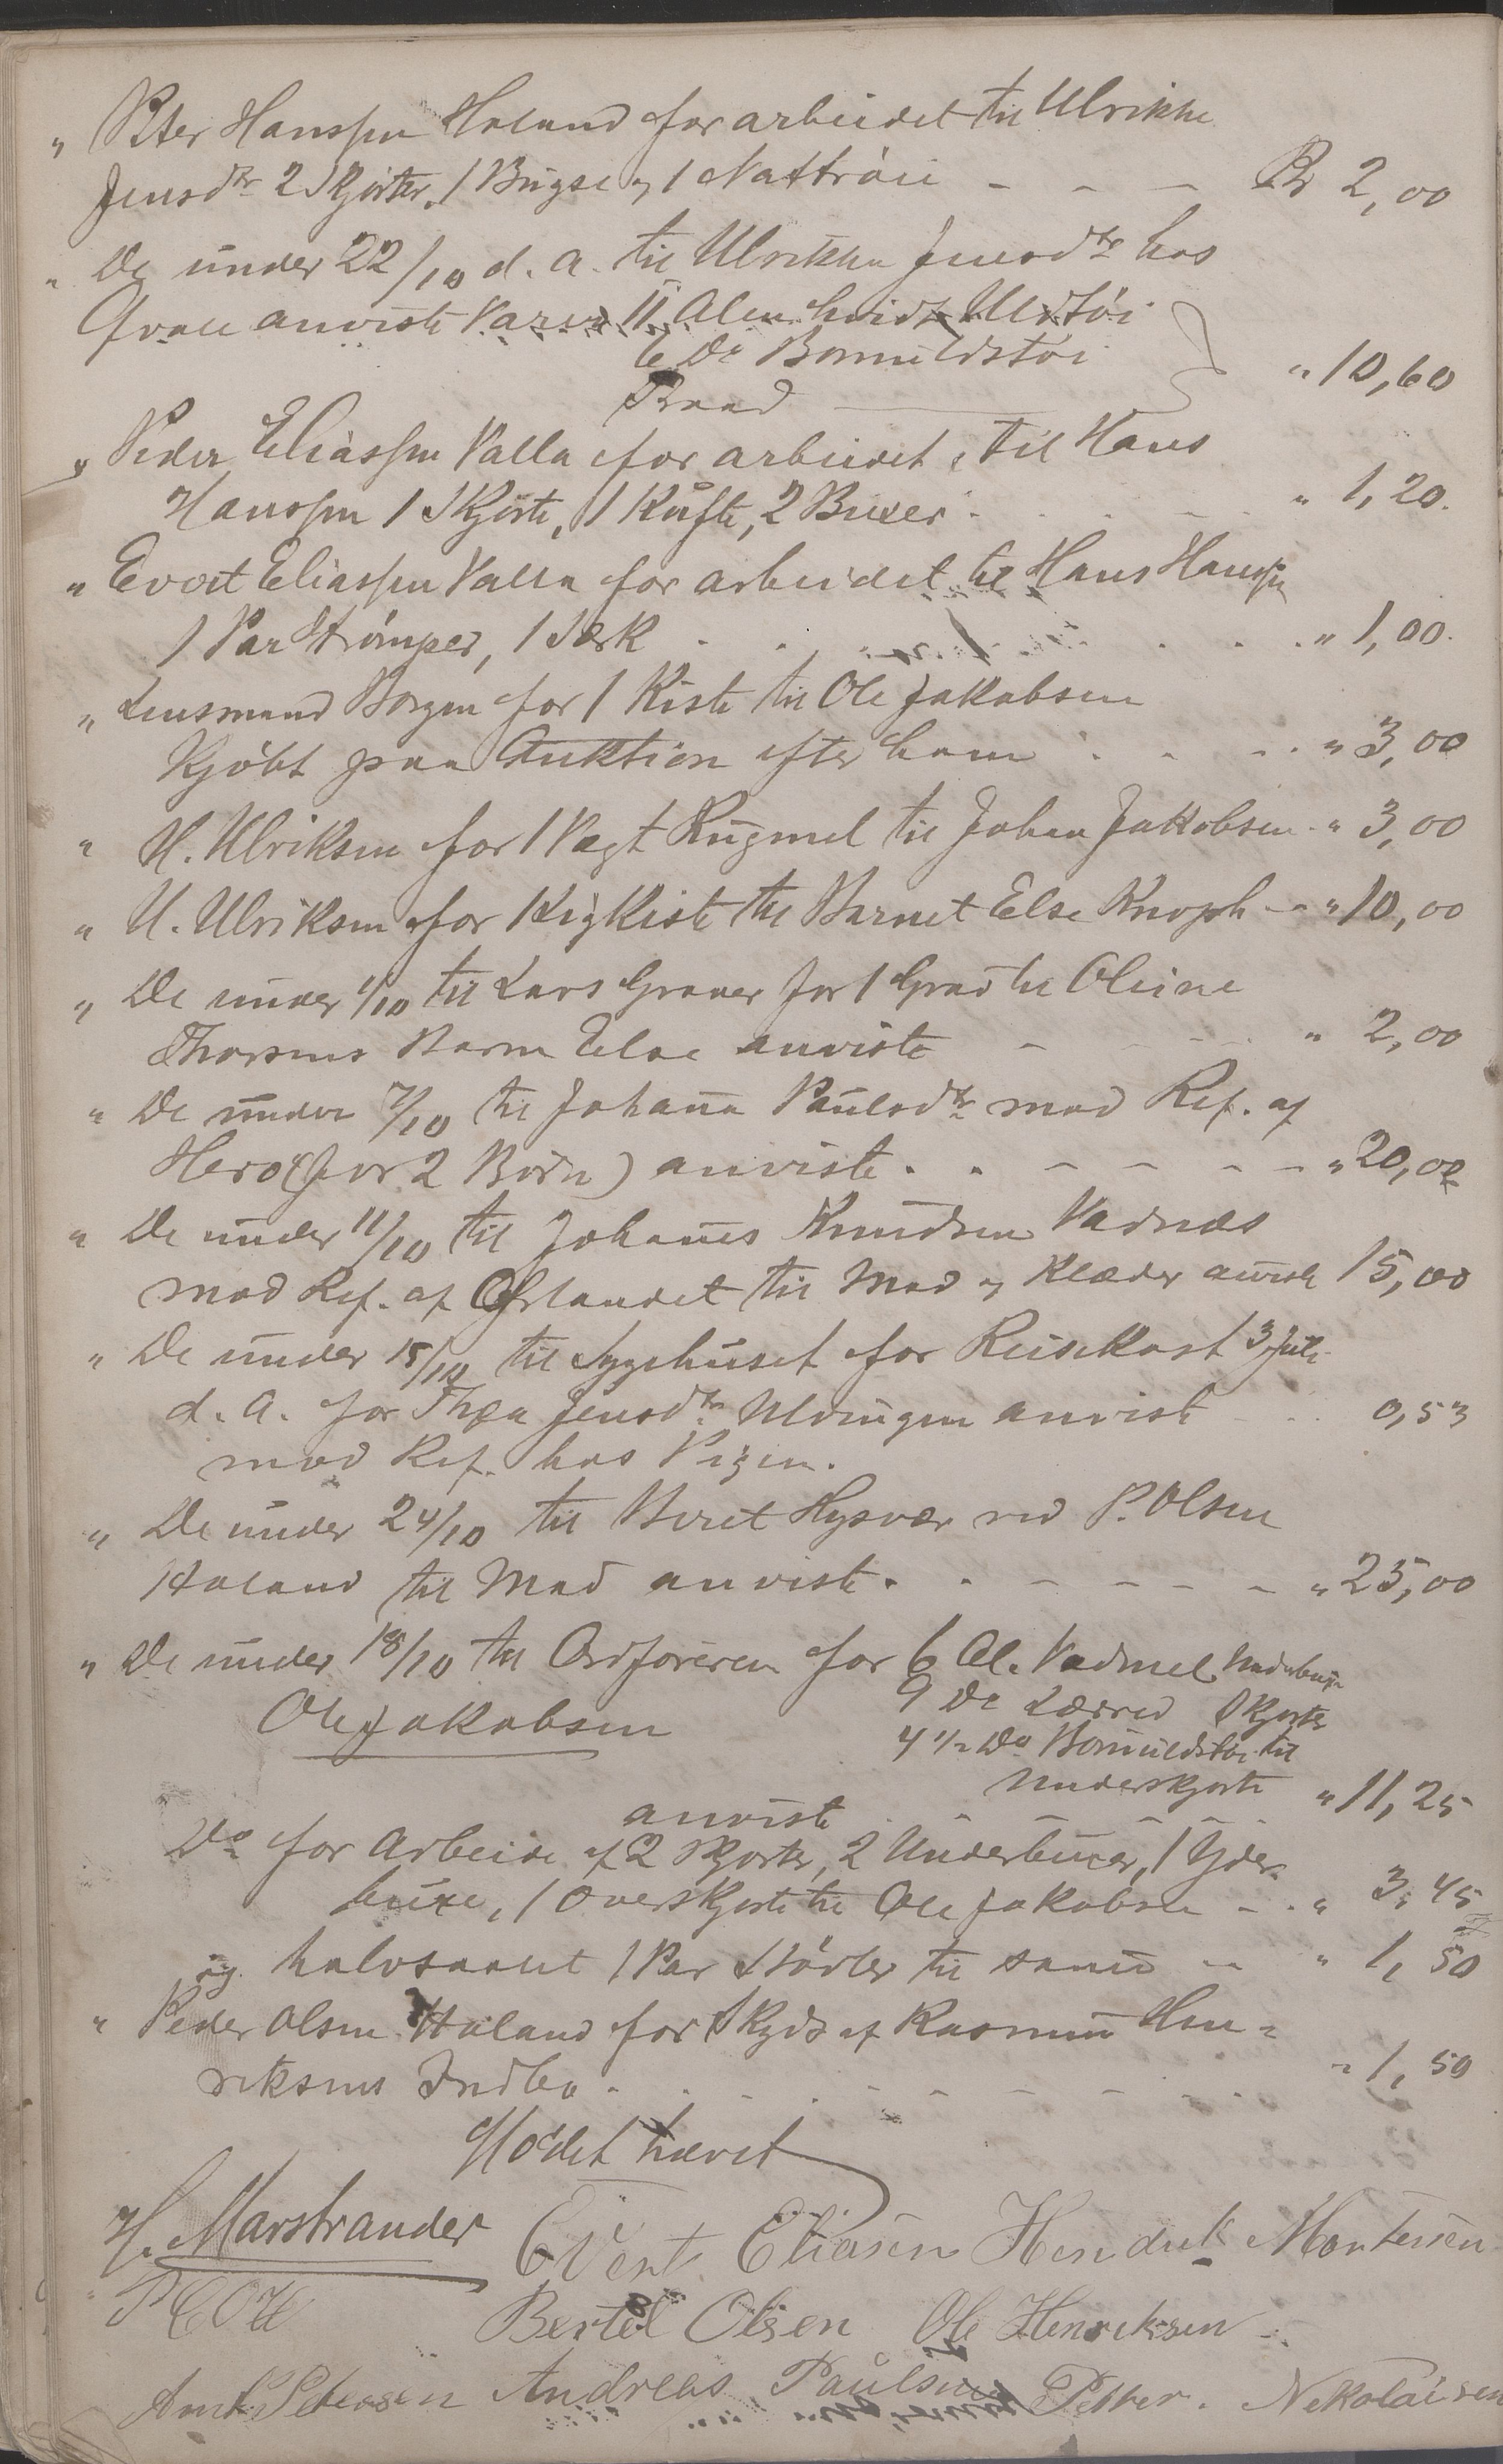 " Peter Hanssen Holand for arbeidet til Ulrikke
Jensdtr 2 Skjorter, 1 Bugse og 1 Nattröie - - - Kr 2,00
" De under 22/10 d. A. til Ulrikke Jensdtr hos
Qvale anviste Varer 11 Alen hvidt Uldtöi
6 Do Bomuldstöi
Traad " 10,60
" Peder Eliassen Valla for arbeidet til Hans
Hanssen 1 Skjorte, 1 Kufte, 2 Buxer . " 1,20.
" Evert Eliassen Valla for arbeidet til Hans Hanssen
1 Par Strömper, 1 Særk . . . . " 1,00.
" Lensmand Borgen for 1 Kiste til Ole Jakobsen
Kjöbt paa Auktion efter ham . . - . " 3,00
" U. Ulriksen for 1 Vægt Rugmel til Johan Jakobsen . " 3,00
" U. Ulriksen for 1 Ligkiste til Barnet Else Knoph - " 10,00
" De under 1/10 til Lars Graver for 1 Grav til Oline
Thorsens Barn Else anviste - - " 2,00
" De under 7/10 til Johana Paulsdtr mod Ref. af
Herö (for 2 Börn) anviste . . - - - - - " 20,00
" De under 11/10 til Johannes Knudsen Vadnæs
mod Ref. af Örlandet til Mad og Klæder anviste 15,00
" De under 15/10 til Sygehuset for Reisekost 3 Juli
d. A. for Thea Jensdtr Ulvingen anvist - . 0,53
mod Ref. hos Pigen.
" De under 24/10 til Beret Hysvær ved P. Olsen
Holand til Mad anviste . . - - - - - " 25,00
" De under 18/10 til Ordföreren for 6 Al. Vadmel Underbuxe
9 Do Lærred Skjorte
Ole Jakobsen
4 1/2 Do Bomuldstöi til
Underskjorte " 11,25
anviste . - - - - .
Do for Arbeide af 2 Skjorter, 2 Underbuxer, 1 Yder-
buxe, 1 Overskjorte til Ole Jakobsen - . " 3,45
og halvsaalet 1 Par Stövler til samme - " 1,50
" Peder Olsen Holand for Skyds af Rasmus Hen=
riksens Indbo . . . - - - - - . " 1,50
Mödet hævet
H. Marstrander Evert Eliasen Hendrik Mortensen
Bertel Olsen Ole Henriksen
Arnt Petersen Andreas Paulsen Petter. Nekolaisen